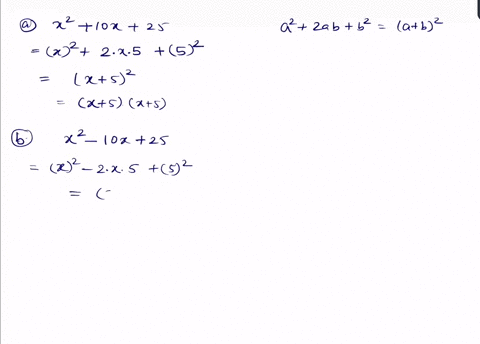 (a) x² + 10x + 25
a² + 2ab + b² = (a+b)²
= (x)² + 2.x.5 + (5)²
= (x+5)²
= (x+5) (x+5)
(b) x² - 10x + 25
= (x)² - 2.x.5 + (5)²
= (